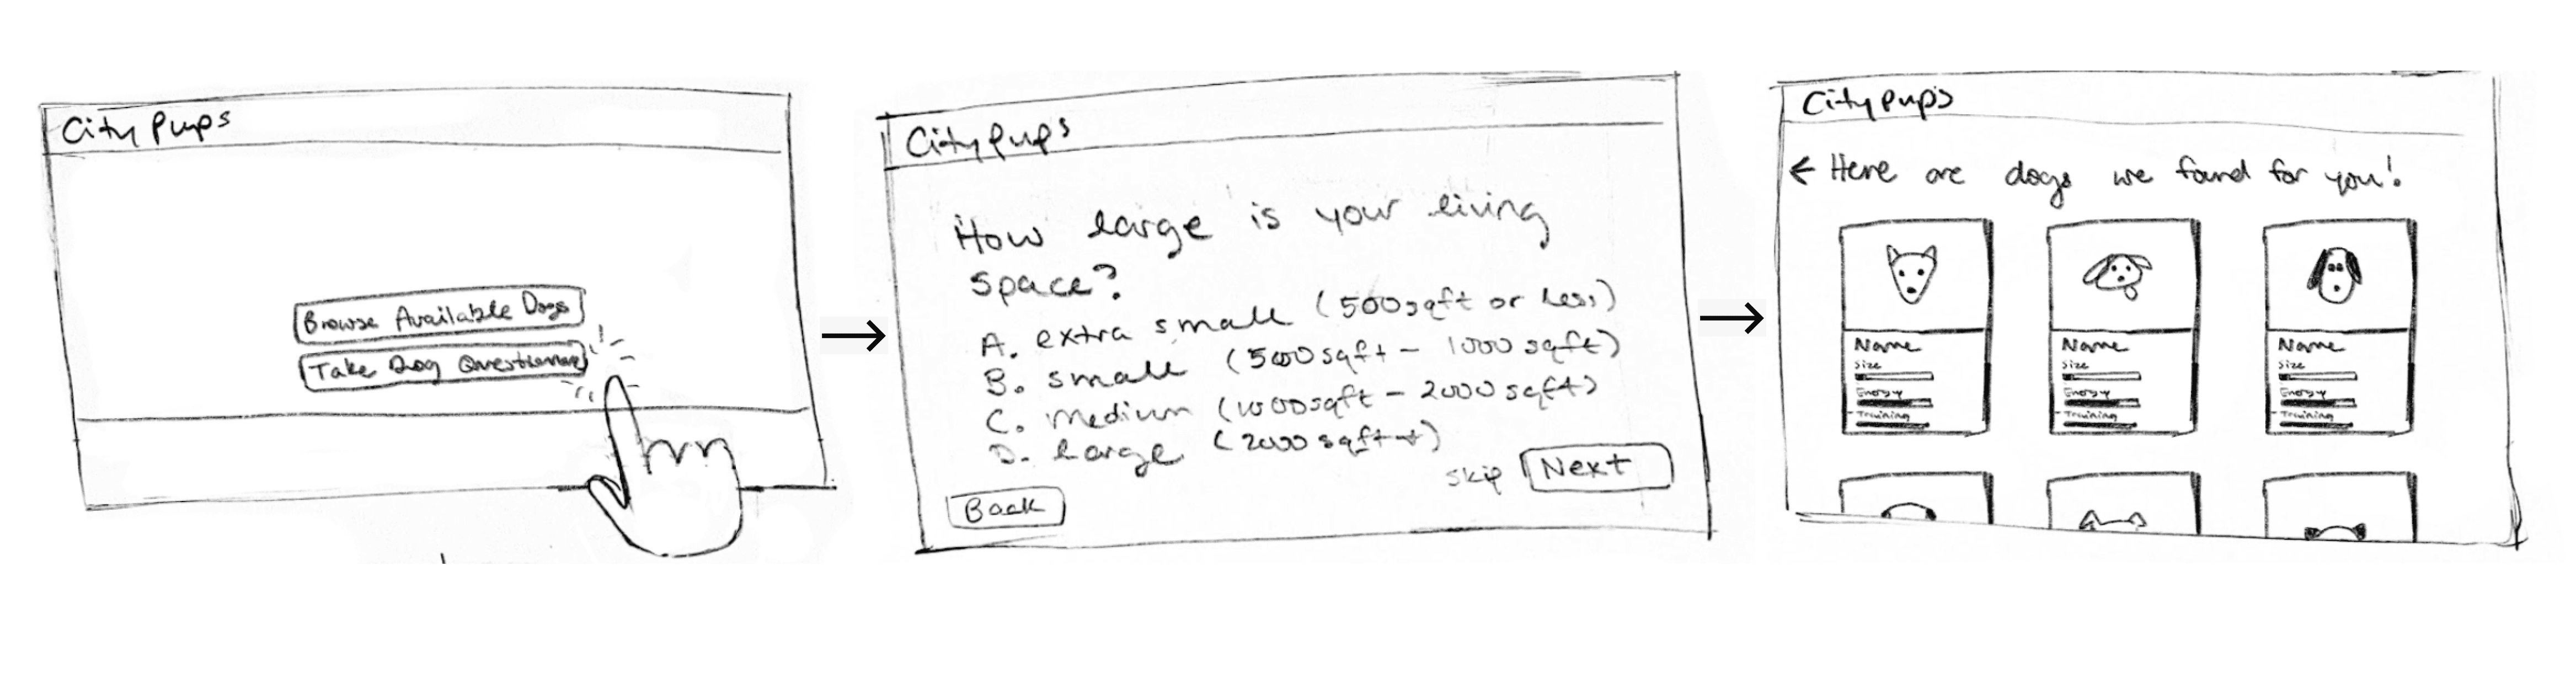 City Pups
Browse Available Dogs
Take Dog Questionnaire
City Pups
How large is your living
space?
A. extra small (500sqft or less)
B. small (500sqft - 1000sqft)
C. Medium (1000sqft - 2000sqft)
D. Large (2000sqft+)
skip Next
Back
City Pups
← Here are dogs we found for you!
Name
Size
Energy
Training
Name
Size
Energy
Training
Name
Size
Energy
Training